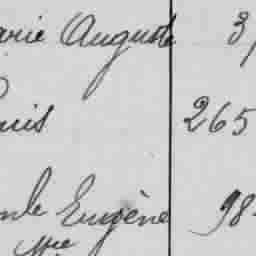 arie Auguste 3
ouis 265
Eugène 98
Mie